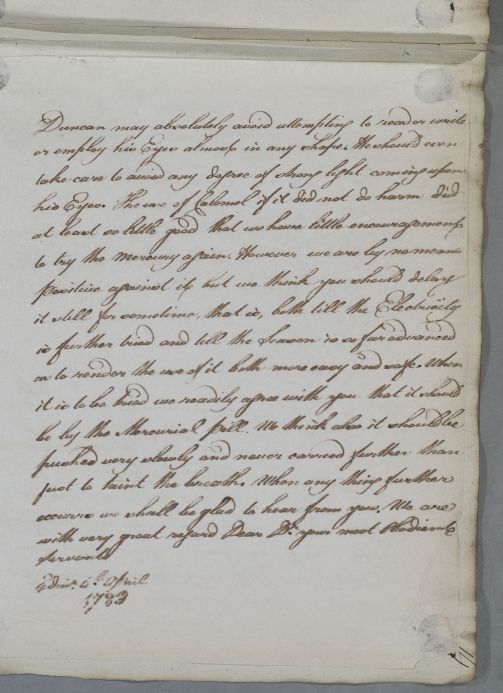 Duncan may absolutely avoid attempting to read or write
or employ his Eyes almost in any shape. He should even
take care to avoid any degree of strong light coming upon
his Eyes. The use of Calomel if it did not do harm did
at least so little good that we have little encouragement
to try the Mercury again. However we are by no means
positive against it but we think you should delay
it still for sometime, that is, both till the Electricity
is further tried and till the Season is so far advanced
as to render the use of it both more easy and safe. When
it is to be tried we readily agree with you that it should
be by the Mercurial pill. We think also it should be
pushed very slowly and never carried further than
just to taint the breath. When any thing further
occurrs we shall be glad to hear from you. We are
with very great regard Dear Dr. your most Obedient
Servants
Edinr. 4th April
1783